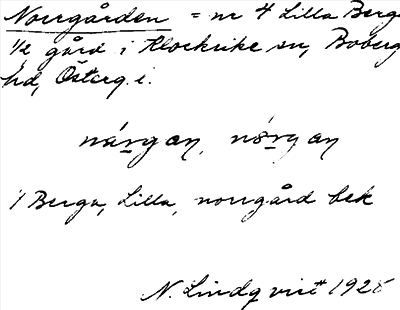 Norrgården = nr 4 Lilla Berga
1/2 gård i Klockrike sn, Boberg
hd, Österg. i.
nárgan, nórgan
1/ Berga, Lilla, norrgård bek
N. Lindqvist 1925